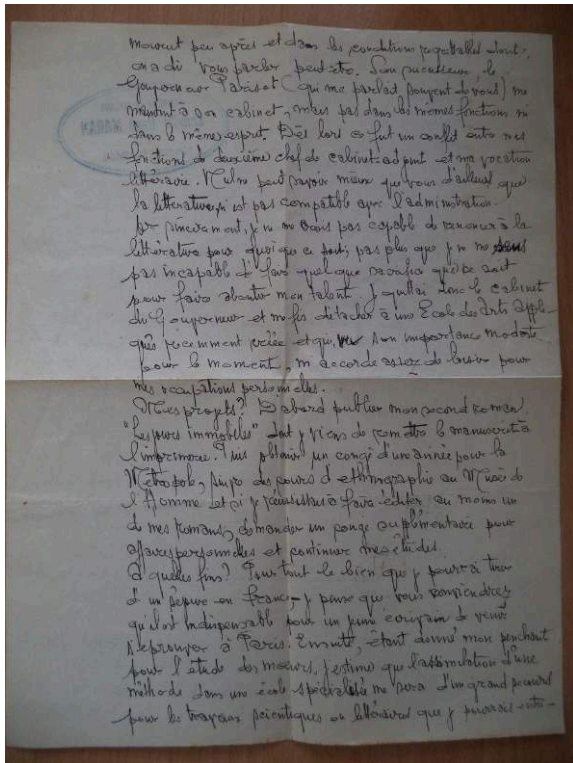 mourut peu après et dans les conditions inquiétables dont
on a dû vous parler peut-être. Son successeur, le
Gouverneur Parisot (qui me parlait souvent de vous) me
maintint à son cabinet, mais pas dans les mêmes fonctions ni
dans le même esprit. Dès lors ce fut un conflit entre mes
fonctions de deuxième chef de cabinet adjoint et ma vocation
littéraire. Nul ne peut savoir mieux que vous d'ailleurs que
la littérature n'est pas compatible avec l'administration.
Or sincèrement, je ne me crois pas capable de renoncer à la
littérature pour quoi que ce soit; pas plus que je ne me sens
pas incapable de faire quelque sacrifice que ce soit
pour faire aboutir mon talent. Je quittai donc le cabinet
du Gouverneur et me fis détacher à une École des Arts appli-
qués récemment créée et qui, vu son importance modeste
pour le moment, m'accorde assez de loisir pour
mes occupations personnelles.
Mes projets? D'abord publier mon second roman,
"Les jours immobiles" dont je viens de remettre le manuscrit à
l'imprimerie. Puis obtenir un congé d'une année pour la
Métropole, suivre des cours d'ethnographie au Musée de
l'Homme et si je réussissais à faire éditer au moins un
de mes romans, demander un congé supplémentaire pour
affaires personnelles et continuer mes études.
À quelles fins? Pour tout le bien que je pourrai tirer
d'un séjour en France, je pense que vous comprendrez
qu'il est indispensable pour un jeune écrivain de venir
s'éprouver à Paris. Ensuite, étant donné mon penchant
pour l'étude des moeurs, j'estime que l'assimilation d'une
méthode dans une école spécialisée me sera d'un grand secours
pour les travaux scientifiques ou littéraires que je pourrais entre-